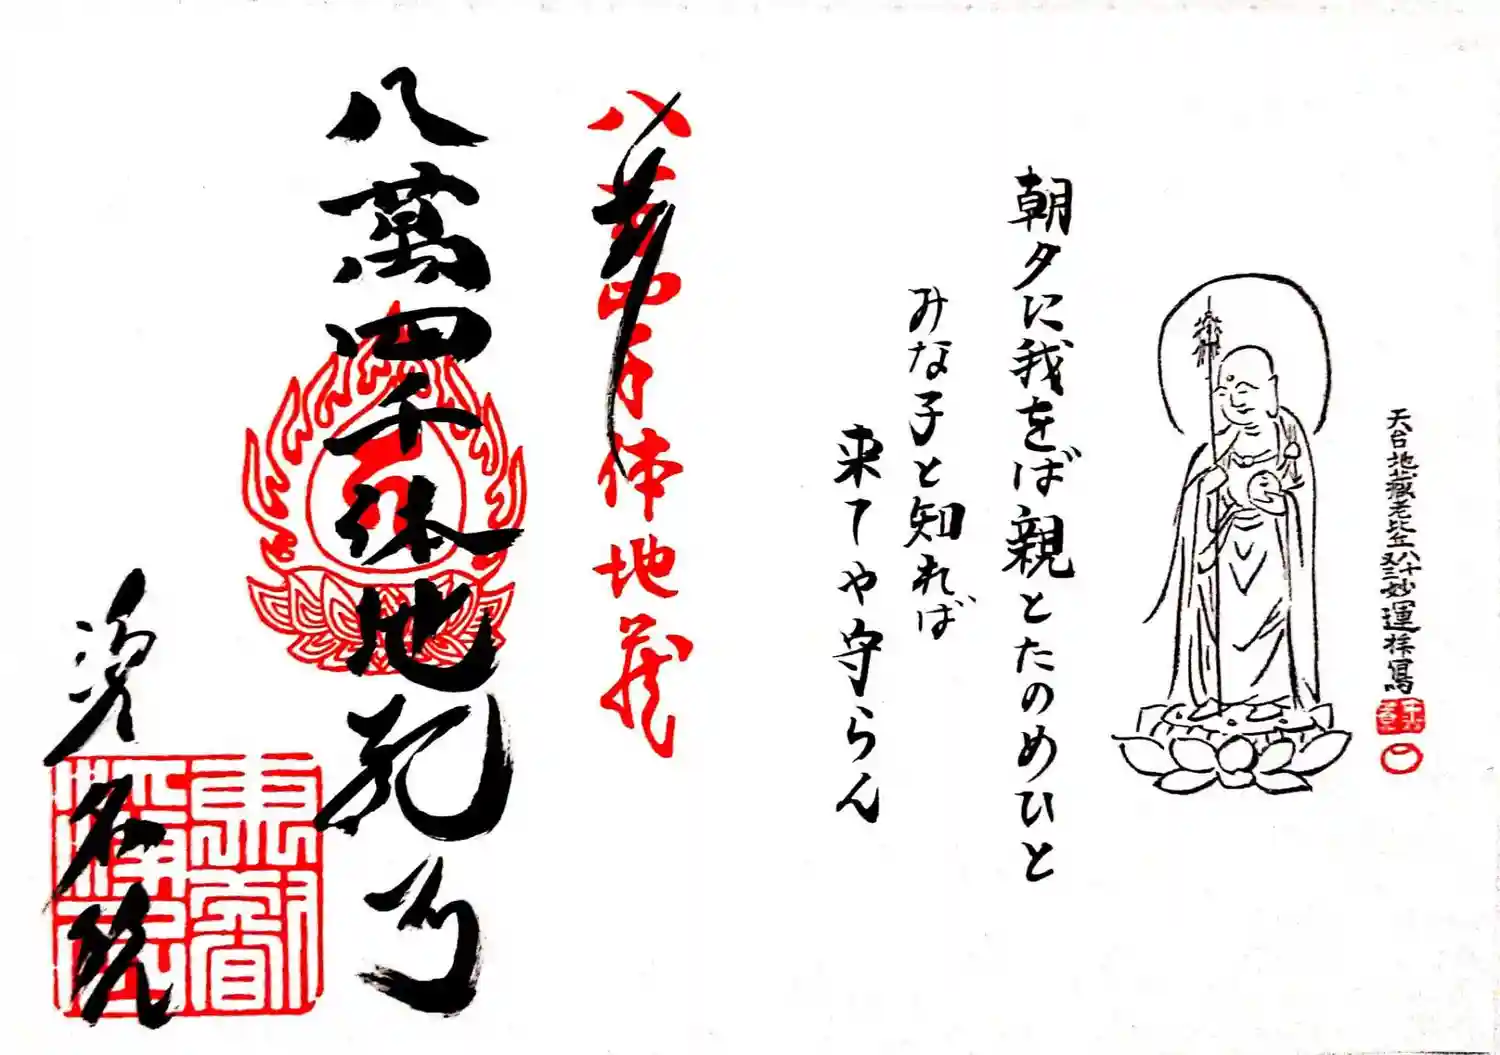 天台地藏老比丘八十又三妙運拝寫
朝夕に我をば親とたのめひと
みな子と知れば
来てや守らん
八萬四千体地蔵
奉
八萬四千体地蔵
浄名院
東叡